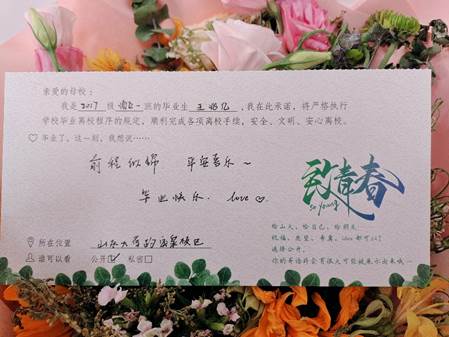 亲爱的母校：
我是 2017 级 一班的毕业生，我在此承诺，将严格执行
学校毕业离校程序的规定，顺利完成各项离校手续，安全、文明、安心离校。
♡ 毕业了，这一刻，我想说……
前程似锦 平安喜乐~
毕业快乐. love ♡.
致青春
so young
给山大、给自己、给朋友
祝福、愿望、希冀、love 都可以！
选择公开，
你的寄语将会有很大可能被展示出来哦~
所在位置 山东大学的
谁可以看 公开☑ 私密□